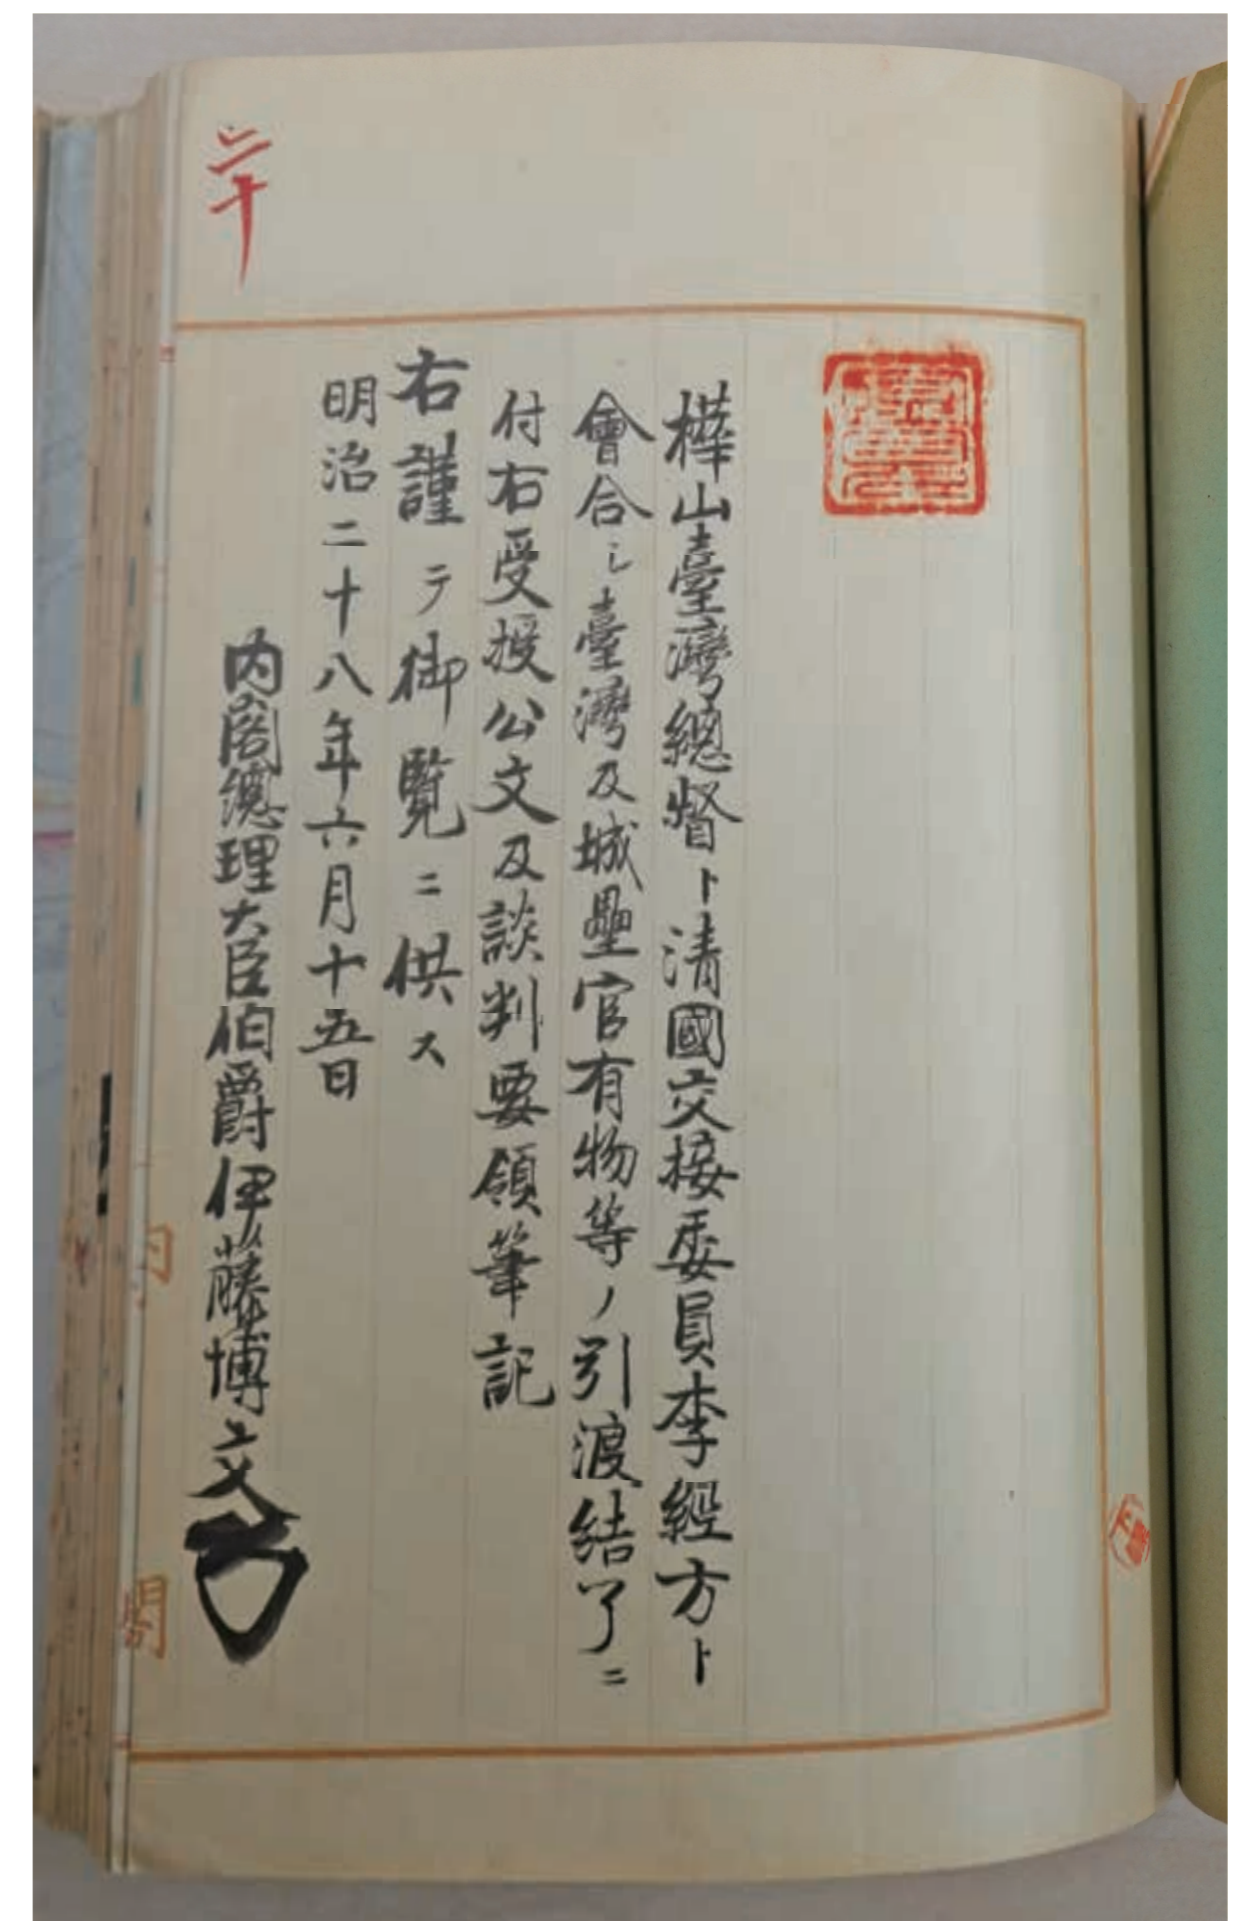 二十
樺山臺灣總督ト清國交接委員李經方ト
會合シ臺灣及城壘官有物等ノ引渡結了ニ
付右受授公文及談判要領筆記
右謹テ御覧ニ供ス
明治二十八年六月十五日
内閣總理大臣伯爵伊藤博文
内閣